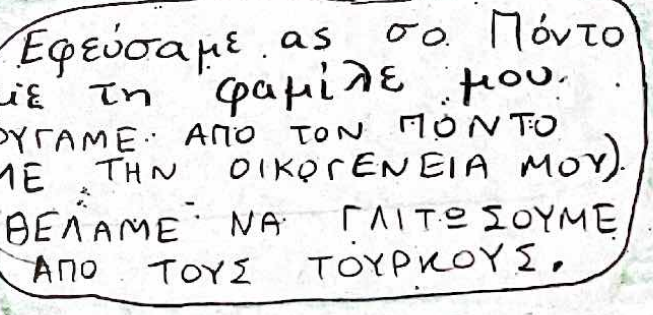 Εφεύσαμε ας σο Πόντο
με τη φαμίλε μου.
ΟΥΓΑΜΕ ΑΠΟ ΤΟΝ ΠΟΝΤΟ
ΜΕ ΤΗΝ ΟΙΚΟΓΕΝΕΙΑ ΜΟΥ)
ΘΕΛΑΜΕ ΝΑ ΓΛΙΤΩΣΟΥΜΕ
ΑΠΟ ΤΟΥΣ ΤΟΥΡΚΟΥΣ.